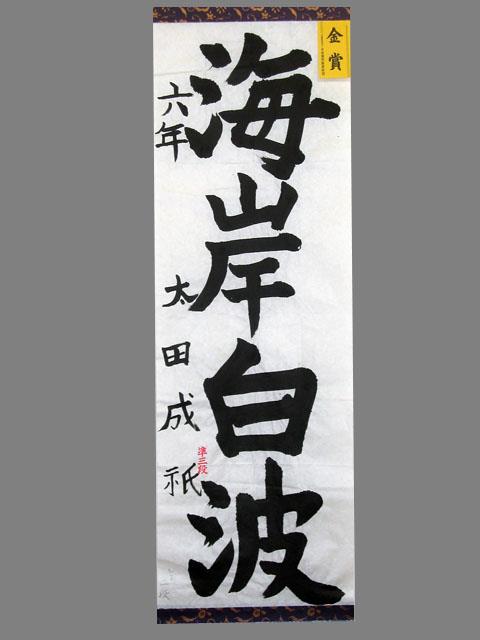 金賞
海岸白波
六年 太田成祇
準三段